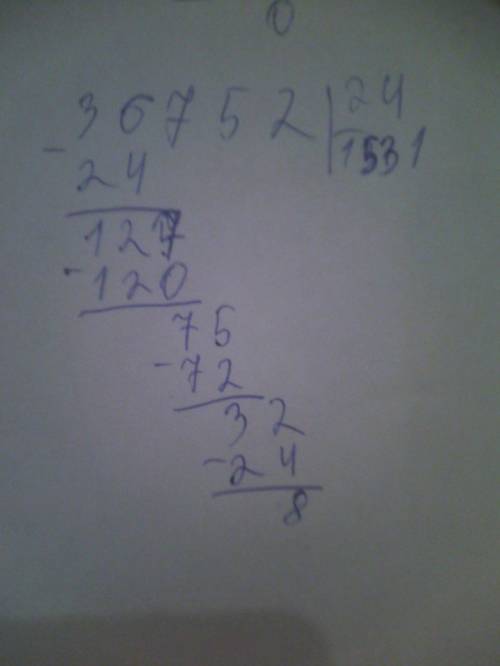 0
36752 | 24
- 24 | 1531
127
- 120
75
- 72
32
- 24
8